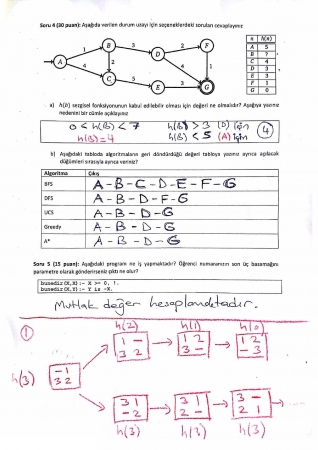 Soru 4 (30 puan): Aşağıda verilen durum uzayı için seçeneklerdeki soruları cevaplayınız
A
B
C
D
E
F
G
n h(n)
A 5
B ?
C 4
D 3
E 3
F 1
G 0
a) h(B) sezgisel fonksiyonunun kabul edilebilir olması için değeri ne olmalıdır? Aşağıya yazınız
nedenini bir cümle açıklayınız
0 < h(B) < 7 h(B) > 3 (D) için
h(B)=4 h(B) < 5 (A) için
4
b) Aşağıdaki tabloda algoritmaların geri döndürdüğü değeri tabloya yazınız ayrıca açılacak
düğümleri sırasıyla ayrıca veriniz?
Algoritma Çıkış
BFS A-B-C-D-E-F-G
DFS A-B-D-F-G
UCS A-B-D-G
Greedy A-B-D-G
A* A-B-D-G
Soru 5 (15 puan): Aşağıdaki program ne iş yapmaktadır? Öğrenci numaranızın son üç basamağını
parametre olarak gönderirseniz çıktı ne olur?
bunedir(X,X):- X >= 0, !.
bunedir(X,Y):- Y is -X.
Mutlak değer hesaplamaktadır.
1
h(2) h(1) h(0)
1 - 1 2 1 2
3 2 3 - - 3
h(3) - 1
3 2
3 1 3 1 3 -
- 2 2 - 2 1
h(3) h(3) h(3)